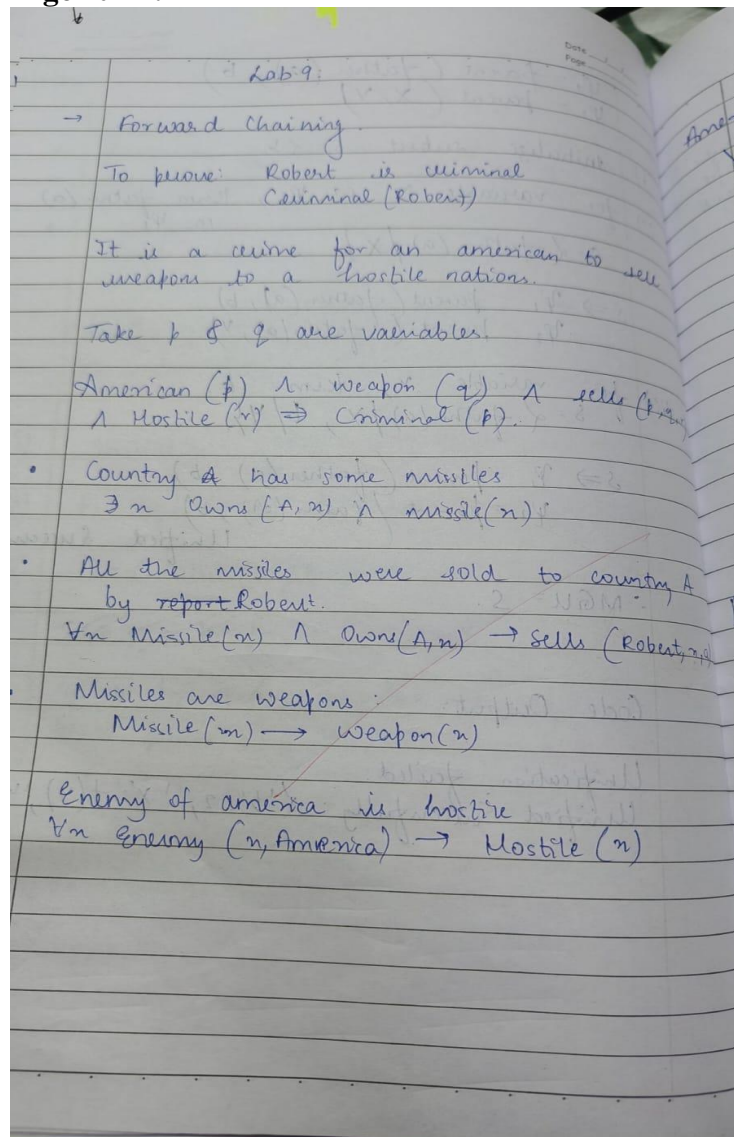 Date
Page
Lab 9:
→ Forward Chaining
To prove: Robert is criminal
Criminal (Robert)
It is a crime for an american to sell
weapons to a hostile nations.
Take p & q are variables
American (p) ∧ weapon (q) ∧ sells (p,q,
∧ Hostile (r) ⇒ Criminal (p).
• Country A has some missiles
∃x Owns (A, x) ∧ missile(x)
• All the missiles were sold to country A
by report Robert.
∀x Missile(x) ∧ Owns(A,x) → sells (Robert,x,
• Missiles are weapons:
Missile (x) → weapon(x)
Enemy of america is hostile
∀x Enemy (x, America) → Hostile (x)
Ame